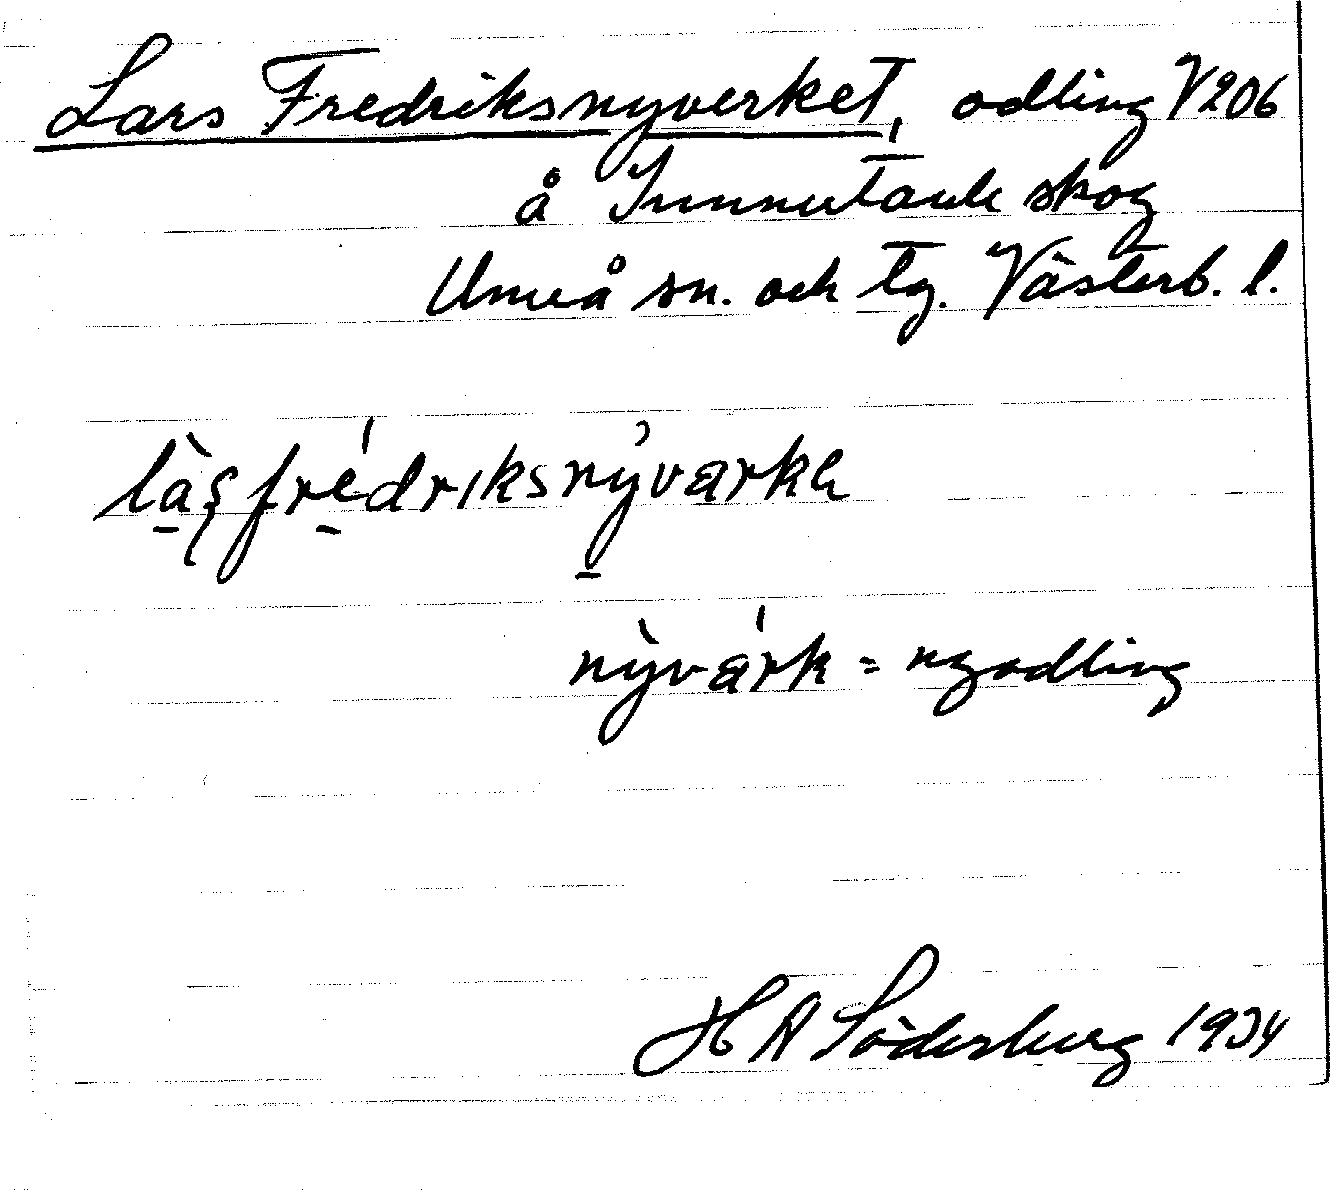 Lars Fredriksnyverket, odling V206
å Innertavle skog
Umeå sn. och tg. Västerb. l.
làşfrédriksnyvarka
nỳvárk = nyodling
H A Söderberg 1934